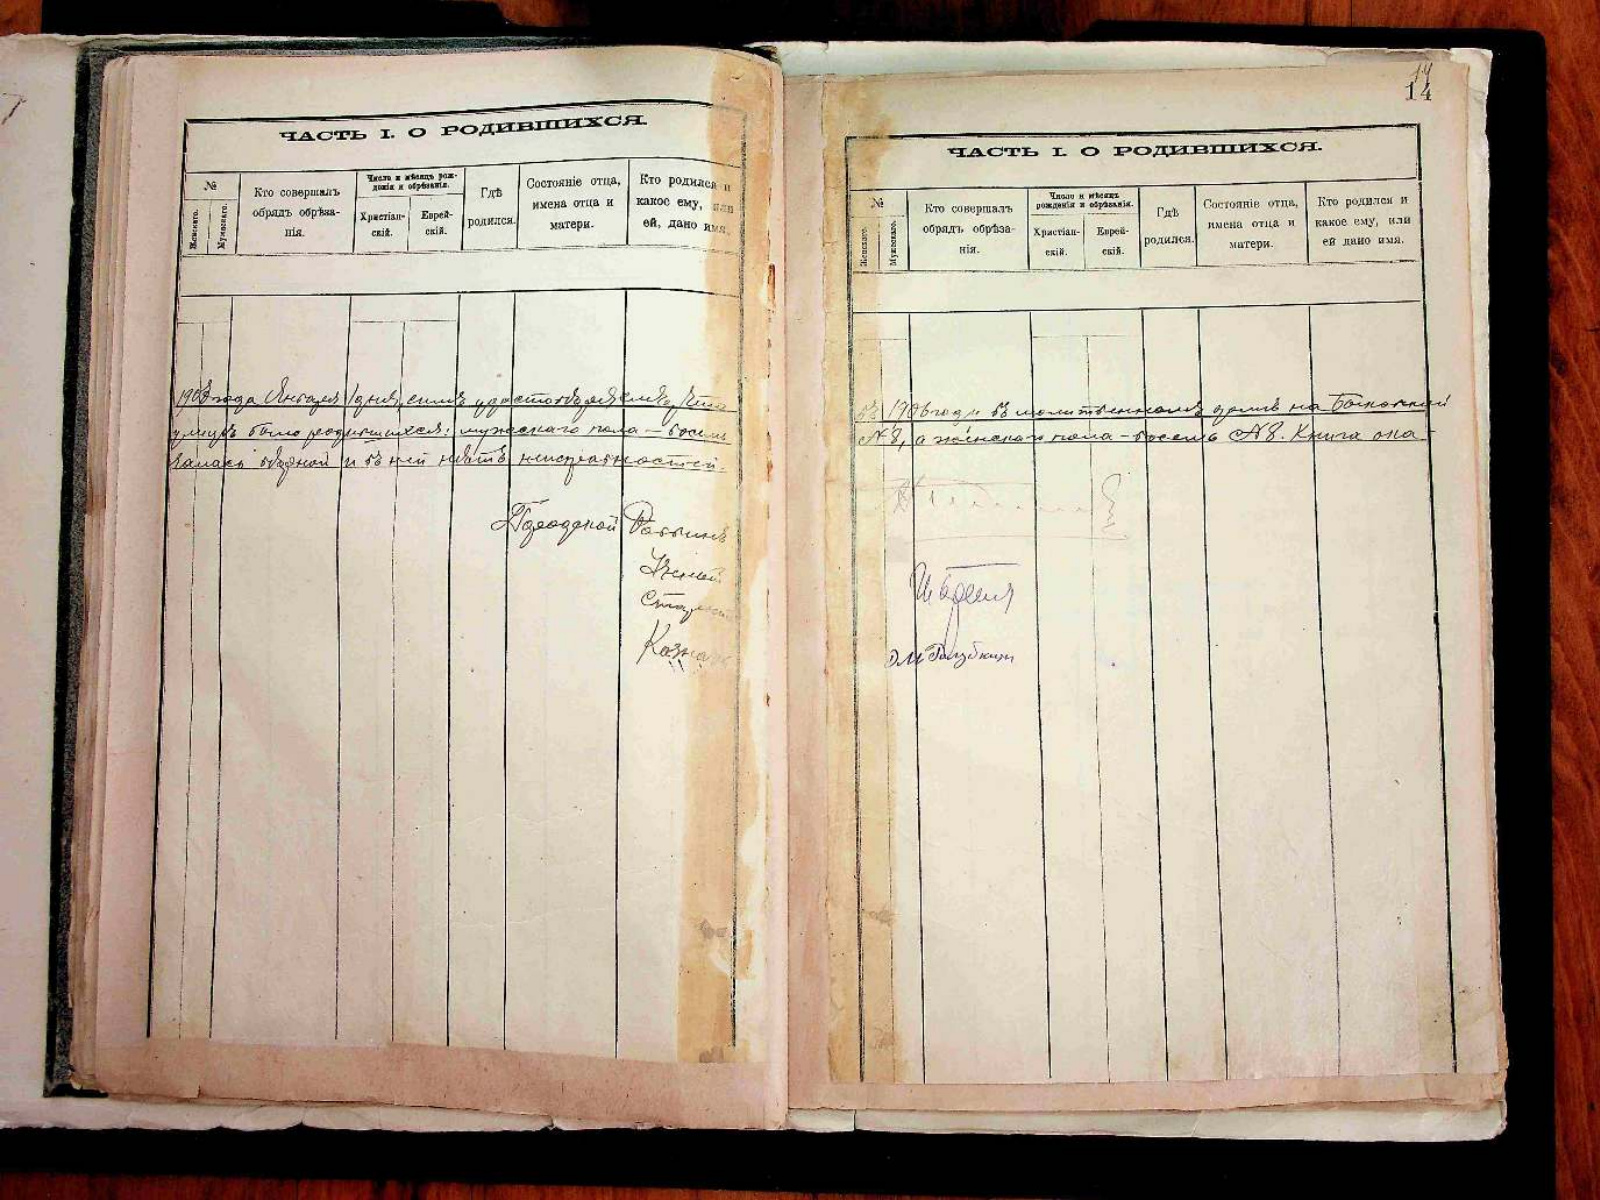 ЧАСТЬ I. О РОДИВШИХСЯ.
№
Женскаго.
Мужскаго.
Кто совершалъ
обрядъ обрѣза-
нія.
Число и мѣсяцъ рож-
денія и обрѣзанія.
Христіан-
скій.
Еврей-
скій.
Гдѣ
родился.
Состояніе отца,
имена отца и
матери.
Кто родился и
какое ему, или
ей, дано имя.
года Января 1 дня, симъ удостовѣряемъ, что
было родившихся: мужскаго пола – восемь
залась вѣрной и въ ней нѣтъ неисправностей.
Городской Раввинъ
Ученый
Старо
Казнач
14
14
ЧАСТЬ I. О РОДИВШИХСЯ.
№
Женскаго.
Мужскаго.
Кто совершалъ
обрядъ обрѣза-
нія.
Число и мѣсяцъ
рожденія и обрѣзанія.
Христіан-
скій.
Еврей-
скій.
Гдѣ
родился.
Состояніе отца,
имена отца и
матери.
Кто родился и
какое ему, или
ей дано имя.
въ году въ молитвенномъ домѣ на
№ 8, а женскаго пола – восемь № 8. Книга ока-